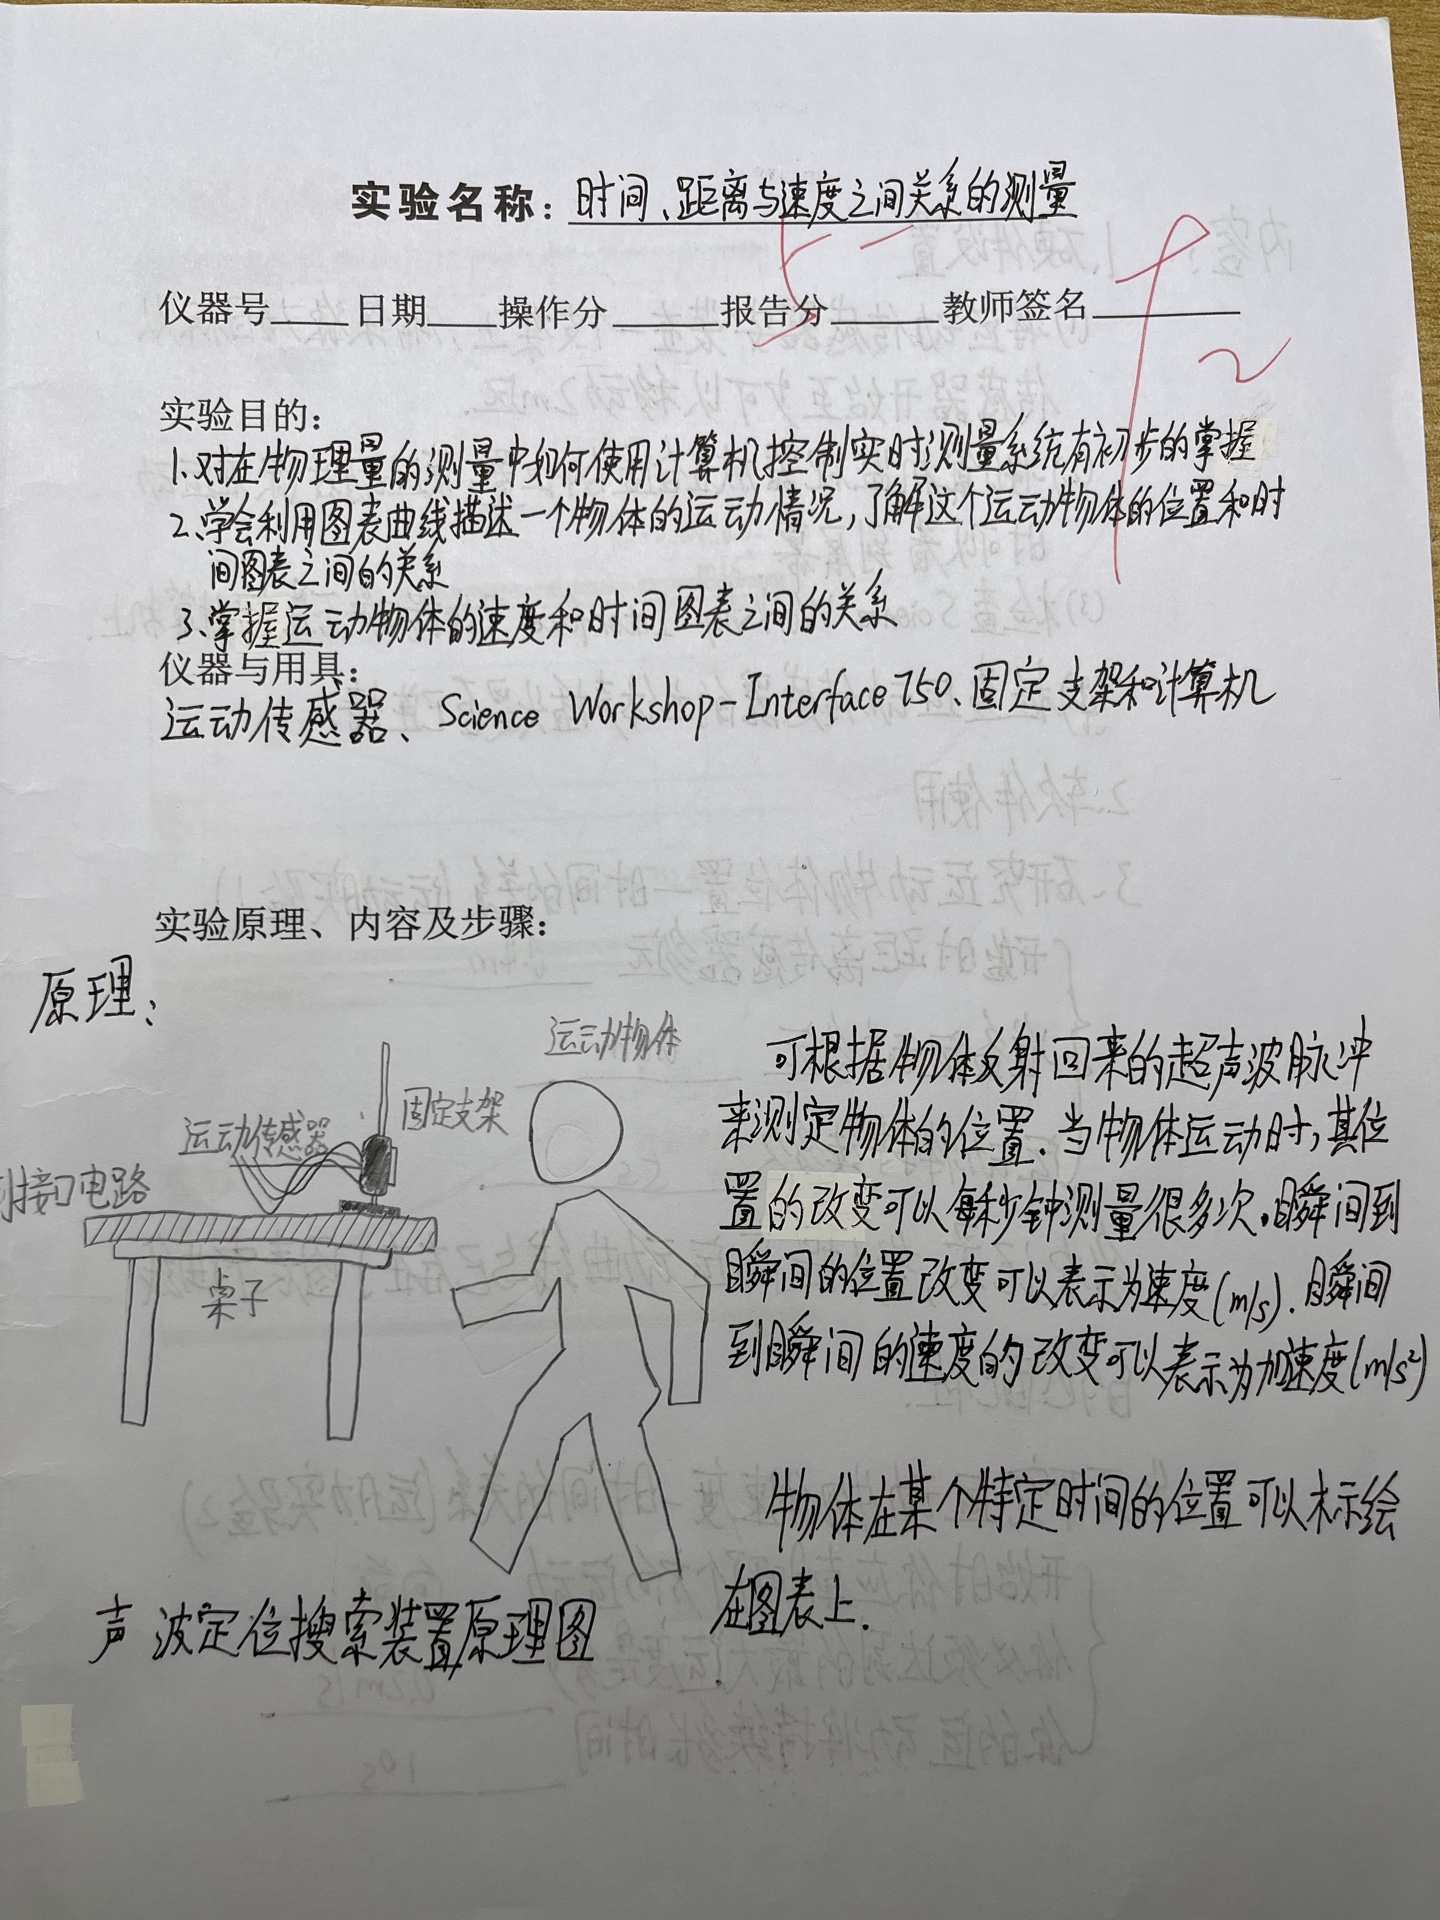 实验名称：时间、距离与速度之间关系的测量
仪器号 日期 操作分 报告分 教师签名
5-
实验目的：
1、对在物理量的测量中如何使用计算机控制实时测量系统有初步的掌握
2、学会利用图表曲线描述一个物体的运动情况，了解这个运动物体的位置和时
间图表之间的关系
3、掌握运动物体的速度和时间图表之间的关系
仪器与用具：
运动传感器、Science Workshop-Interface 750、固定支架和计算机
实验原理、内容及步骤：
原理：
运动物体
固定支架
运动传感器
接口电路
桌子
声波定位搜索装置原理图
可根据物体反射回来的超声波脉冲
来测定物体的位置.当物体运动时，其位
置的改变可以每秒钟测量很多次.瞬间到
瞬间的位置改变可以表示为速度(m/s).瞬间
到瞬间的速度的改变可以表示为加速度(m/s²)
物体在某个特定时间的位置可以标绘
在图表上.